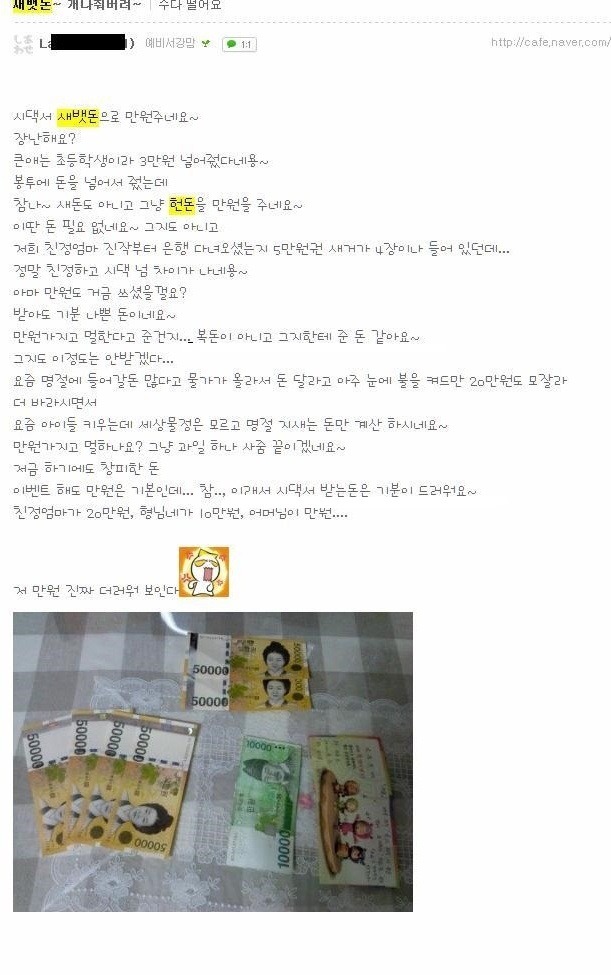 새뱃돈~ 개나줘버려~ | 수다 떨어요
1) 예비서강맘 1:1
http://cafe.naver.com/
시댁서 새뱃돈으로 만원주네요~
장난해요?
큰애는 초등학생이라 3만원 넣어줬다네용~
봉투에 돈을 넣어서 줬는데
참나~ 새돈도 아니고 그냥 헌돈을 만원을 주네요~
이딴 돈 필요 없네요~ 그지도 아니고
저희 친정엄마 진작부터 은행 다녀오셨는지 5만원권 새거가 4장이나 들어 있던데...
정말 친정하고 시댁 넘 차이가 나네용~
아마 만원도 거금 쓰셨을껄요?
받아도 기분 나쁜 돈이네요~
만원가지고 멀한다고 준건지... 복돈이 아니고 그지한테 준 돈 같아요~
그지도 이정도는 안받겠다...
요즘 명절에 들어갈돈 많다고 물가가 올라서 돈 달라고 아주 눈에 불을 켜드만 20만원도 모잘라
더 바라시면서
요즘 아이들 키우는데 세상물정은 모르고 명절 지새는 돈만 계산 하시네요~
만원가지고 멀하나요? 그냥 과일 하나 사줌 끝이겠네요~
저금 하기에도 창피한 돈
이벤트 해도 만원은 기본인데... 참.., 이래서 시댁서 받는돈은 기분이 드러워요~
친정엄마가 20만원, 형님네가 10만원, 어머님이 만원....
저 만원 진짜 더러워 보인다
50000
50000
50000
50000
50000
50000
10000
10000